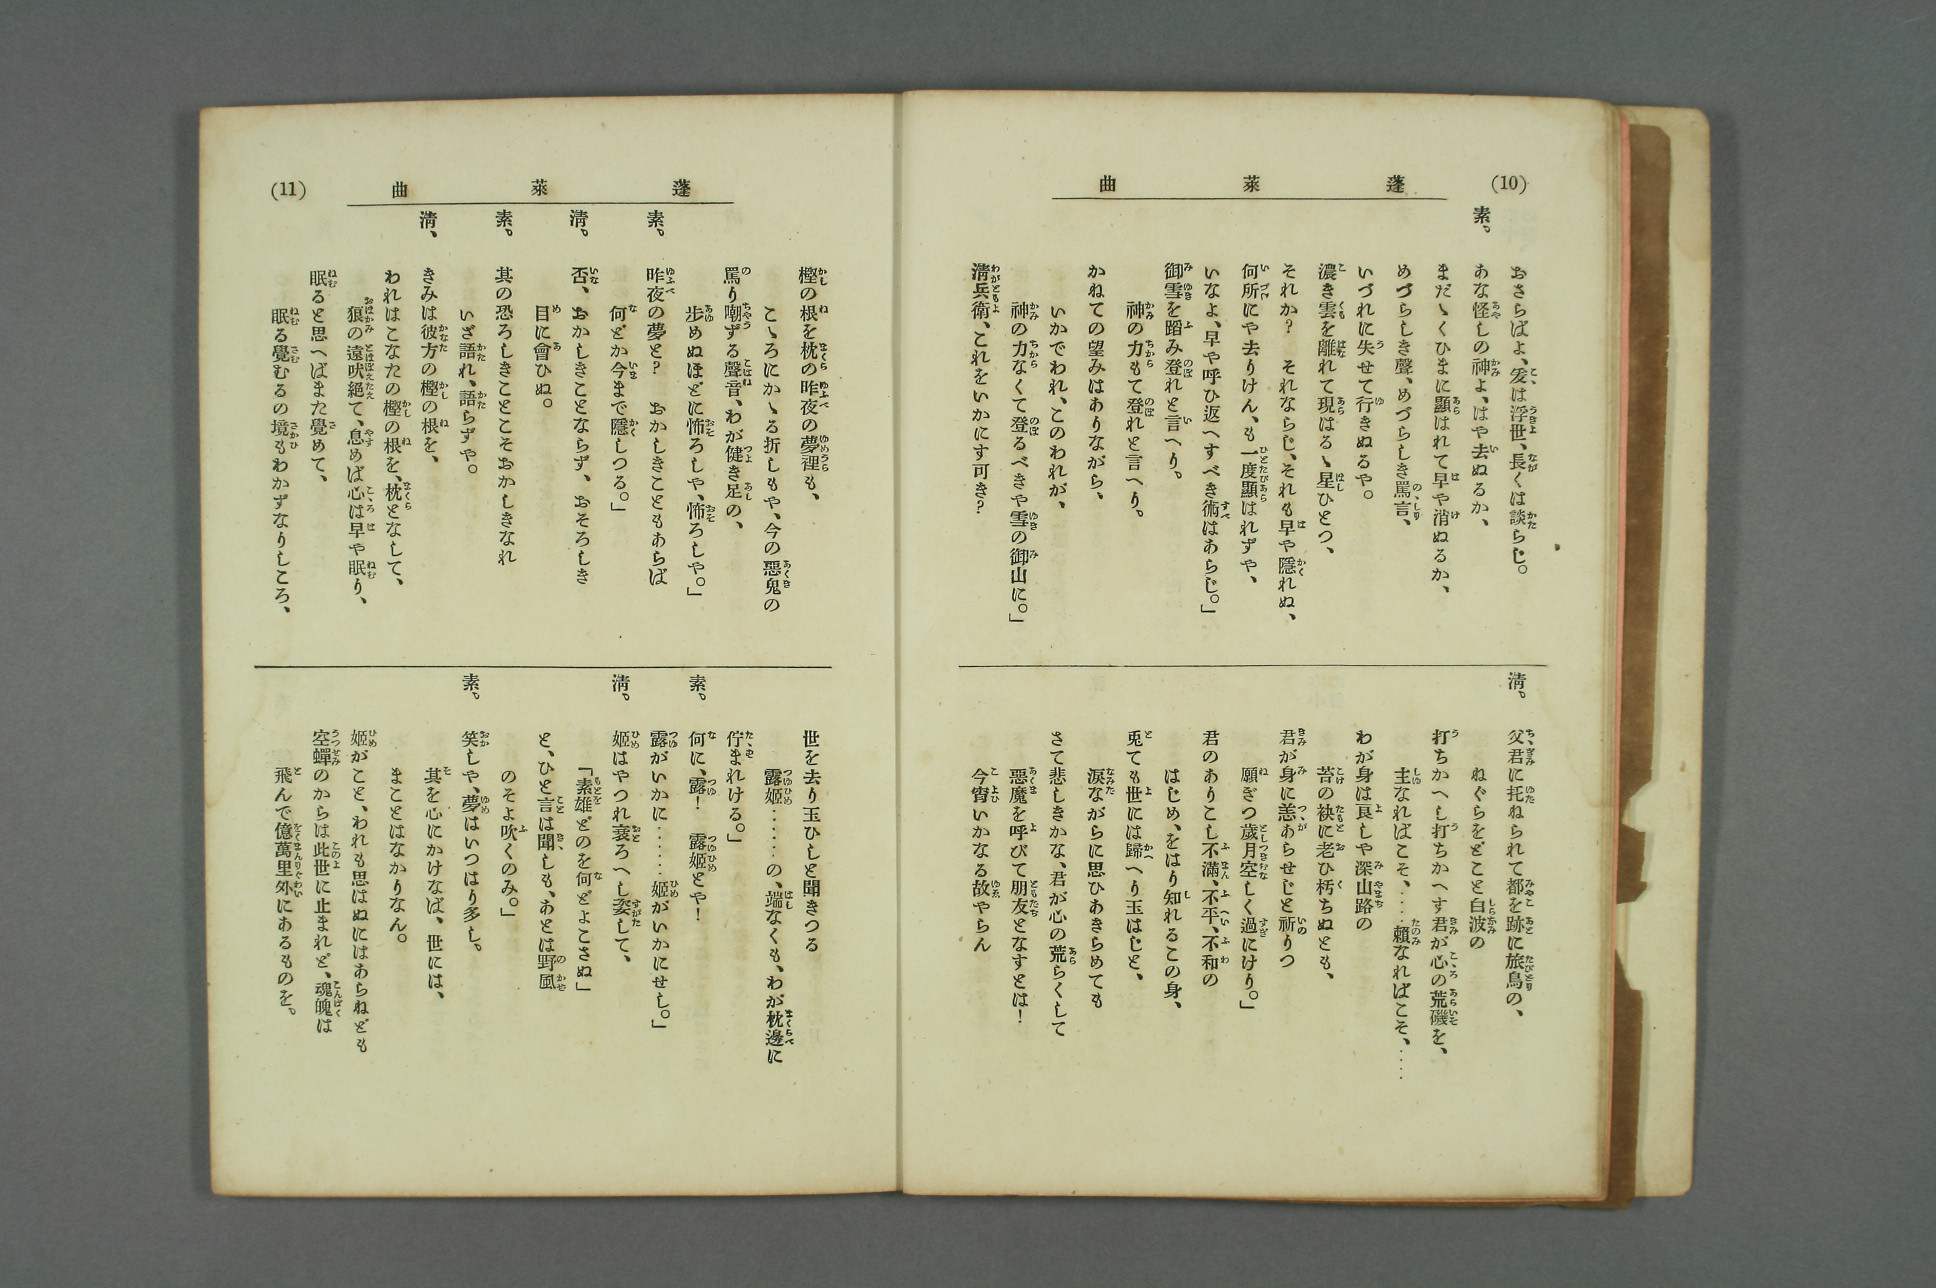 (10)
蓬萊曲
おさらばよ、爰は浮世、長くは談らじ。
素。 あな怪しの神よ、はや去ぬるか、
まだ〱くひまに顯はれて早や消ぬるか、
めづらしき聲、めづらしき罵言、
いづれに失せて行きぬるや。
濃き雲を離れて現はるゝ星ひとつ、
それか? それならじ、それも早や隱れぬ、
何所にや去りけん、も一度顯はれずや、
いなよ、早や呼ひ返へすべき術はあらじ。」
御雪を蹈み登れと言へり。
神の力もて登れと言へり。
かねての望みはありながら、
いかでわれ、このわれが、
神の力なくて登るべきや雪の御山に。」
淸兵衛、これをいかにす可き?
淸。 父君に托ねられて都を跡に旅鳥の、
ねぐらをどこと白波の
打ちかへし打ちかへす君が心の荒磯を、
主なればこそ、‥‥賴なればこそ、‥‥
わが身は良しや深山路の
苔の袂に老ひ朽ちぬとも、
君が身に恙あらせじと祈りつ
願ぎつ歲月空しく過にけり。」
君のありこし不滿、不平、不和の
はじめ、をはり知れるこの身、
兎ても世には歸へり玉はじと、
淚ながらに思ひあきらめても
さて悲しきかな、君が心の荒らくして
惡魔を呼びて朋友となすとは!
今宵いかなる故やらん
(11)
蓬萊曲
樫の根を枕の昨夜の夢裡も、
こゝろにかゝる折しもや、今の惡鬼の
罵り嘲ずる聲音、わが健き足の、
步めぬほどに怖ろしや、怖ろしや。」
素。 昨夜の夢と? おかしきこともあらば
何どか今まで隱しつる。」
淸。 否、おかしきことならず、おそろしき
目に會ひぬ。
素。 其の恐ろしきことこそおかしきなれ
いざ語れ、語らずや。
淸、 きみは彼方の樫の根を、
われはこなたの樫の根を、枕となして、
狼の遠吠絕て、息めば心は早や眠り、
眠ると思へばまた覺めて、
眠る覺むるの境もわかずなりしころ、
世を去り玉ひしと聞きつる
露姬‥‥‥の、端なくも、わが枕邊に
佇まれける。」
素。 何に、露! 露姬とや!
露がいかに‥‥‥姬がいかにせし。」
淸。 姬はやつれ衰ろへし姿して、
「素雄どのを何どよこさぬ」
と、ひと言は聞しも、あとは野風
のそよ吹くのみ。」
素。 笑しや、夢はいつはり多し。
其を心にかけなば、世には、
まことはなかりなん。
姬がこと、われも思はぬにはあらねども
空蟬のからは此世に止まれど、魂魄は
飛んで億萬里外にあるものを。